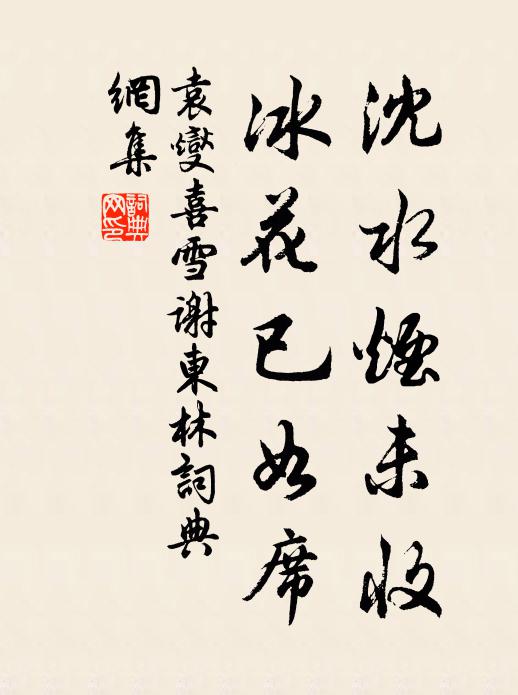 沈水煙未收
冰花已如席
袁燮喜雪谢東林詞典
網集
詞典
网印